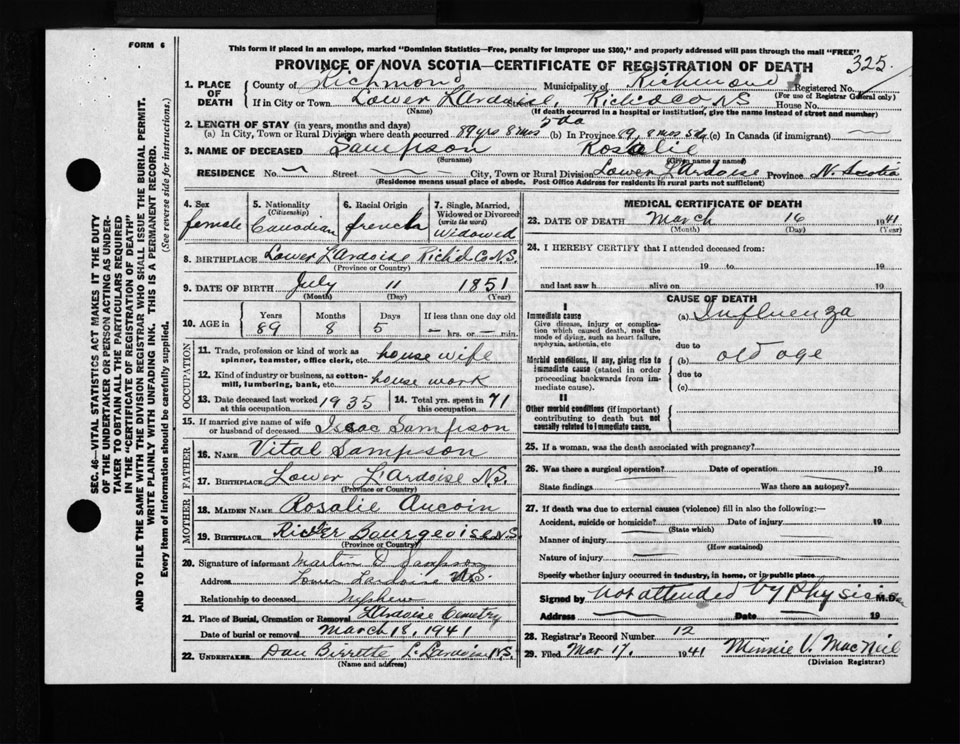 FORM 6
This form if placed in an envelope, marked "Dominion Statistics—Free, penalty for improper use $300," and properly addressed will pass through the mail "FREE"
PROVINCE OF NOVA SCOTIA—CERTIFICATE OF REGISTRATION OF DEATH
325
1. PLACE OF DEATH
County of Richmond Municipality of Richmond Registered No.
(For use of Registrar General only)
If in City or Town Lower L'Ardoise, Rich'd Co NS House No.
(If death occurred in a hospital or institution, give the name instead of street and number)
2. LENGTH OF STAY (in years, months and days)
(a) In City, Town or Rural Division where death occurred 89 yrs 8 mos (b) In Province 89, 8 mos 5d (c) In Canada (if immigrant) —
3. NAME OF DECEASED Sampson Rosalie
(Surname) (Given name or names)
RESIDENCE No. — Street — City, Town or Rural Division Lower L'Ardoise Province N. Scotia
(Residence means usual place of abode. Post Office Address for residents in rural parts not sufficient)
4. Sex female
5. Nationality (Citizenship) Canadian
6. Racial Origin french
7. Single, Married, Widowed or Divorced (write the word) Widowed
8. BIRTHPLACE Lower L'Ardoise Rich'd Co N.S.
(Province or Country)
9. DATE OF BIRTH July 11 1851
(Month) (Day) (Year)
10. AGE in Years 89 Months 8 Days 5 If less than one day old — hrs. or — min.
OCCUPATION
11. Trade, profession or kind of work as spinner, teamster, office clerk, etc. house wife
12. Kind of industry or business, as cotton-mill, lumbering, bank, etc. house work
13. Date deceased last worked at this occupation 1935
14. Total yrs. spent in this occupation 71
15. If married give name of wife or husband of deceased Isaac Sampson
FATHER
16. NAME Vital Sampson
17. BIRTHPLACE Lower L'Ardoise N.S.
(Province or Country)
MOTHER
18. MAIDEN NAME Rosalie Aucoin
19. BIRTHPLACE River Bourgeois N.S.
(Province or Country)
20. Signature of informant Martin D Sampson
Address Lower Lardoise N.S.
Relationship to deceased Nephew
21. Place of Burial, Cremation or Removal L'Ardoise Cemetry
Date of burial or removal March 18, 1941
22. UNDERTAKER Dan Burette, L. Lardoise N.S.
(Name and address)
MEDICAL CERTIFICATE OF DEATH
23. DATE OF DEATH March 16 1941
(Month) (Day) (Year)
24. I HEREBY CERTIFY that I attended deceased from:
19 to 19
and last saw h alive on 19
CAUSE OF DEATH
I
Immediate cause
Give disease, injury or complication which caused death, not the mode of dying, such as heart failure, asphyxia, asthenia, etc
(a) Influenza
due to
Morbid conditions, if any, giving rise to immediate cause (stated in order proceeding backwards from immediate cause).
(b) old age
due to
(c)
II
Other morbid conditions (if important) contributing to death but not causally related to immediate cause.
25. If a woman, was the death associated with pregnancy?
26. Was there a surgical operation? — Date of operation — 19
State findings — Was there an autopsy?
27. If death was due to external causes (violence) fill in also the following:—
Accident, suicide or homicide? Date of injury 19
(State which)
Manner of injury
(How sustained)
Nature of injury
Specify whether injury occurred in industry, in home, or in public place
Signed by Not attended by Physician M.D.
Address Date 19
28. Registrar's Record Number 12
29. Filed Mar 17, 1941 Minnie V. MacNeil
(Division Registrar)
SEC. 46—VITAL STATISTICS ACT MAKES IT THE DUTY
OF THE UNDERTAKER OR PERSON ACTING AS UNDERTAKER TO OBTAIN ALL THE PARTICULARS REQUIRED
IN THE "CERTIFICATE OF REGISTRATION OF DEATH"
AND TO FILE THE SAME WITH THE DIVISION REGISTRAR WHO SHALL ISSUE THE BURIAL PERMIT.
WRITE PLAINLY WITH UNFADING INK. THIS IS A PERMANENT RECORD.
Every item of information should be carefully supplied. (See reverse side for instructions.)